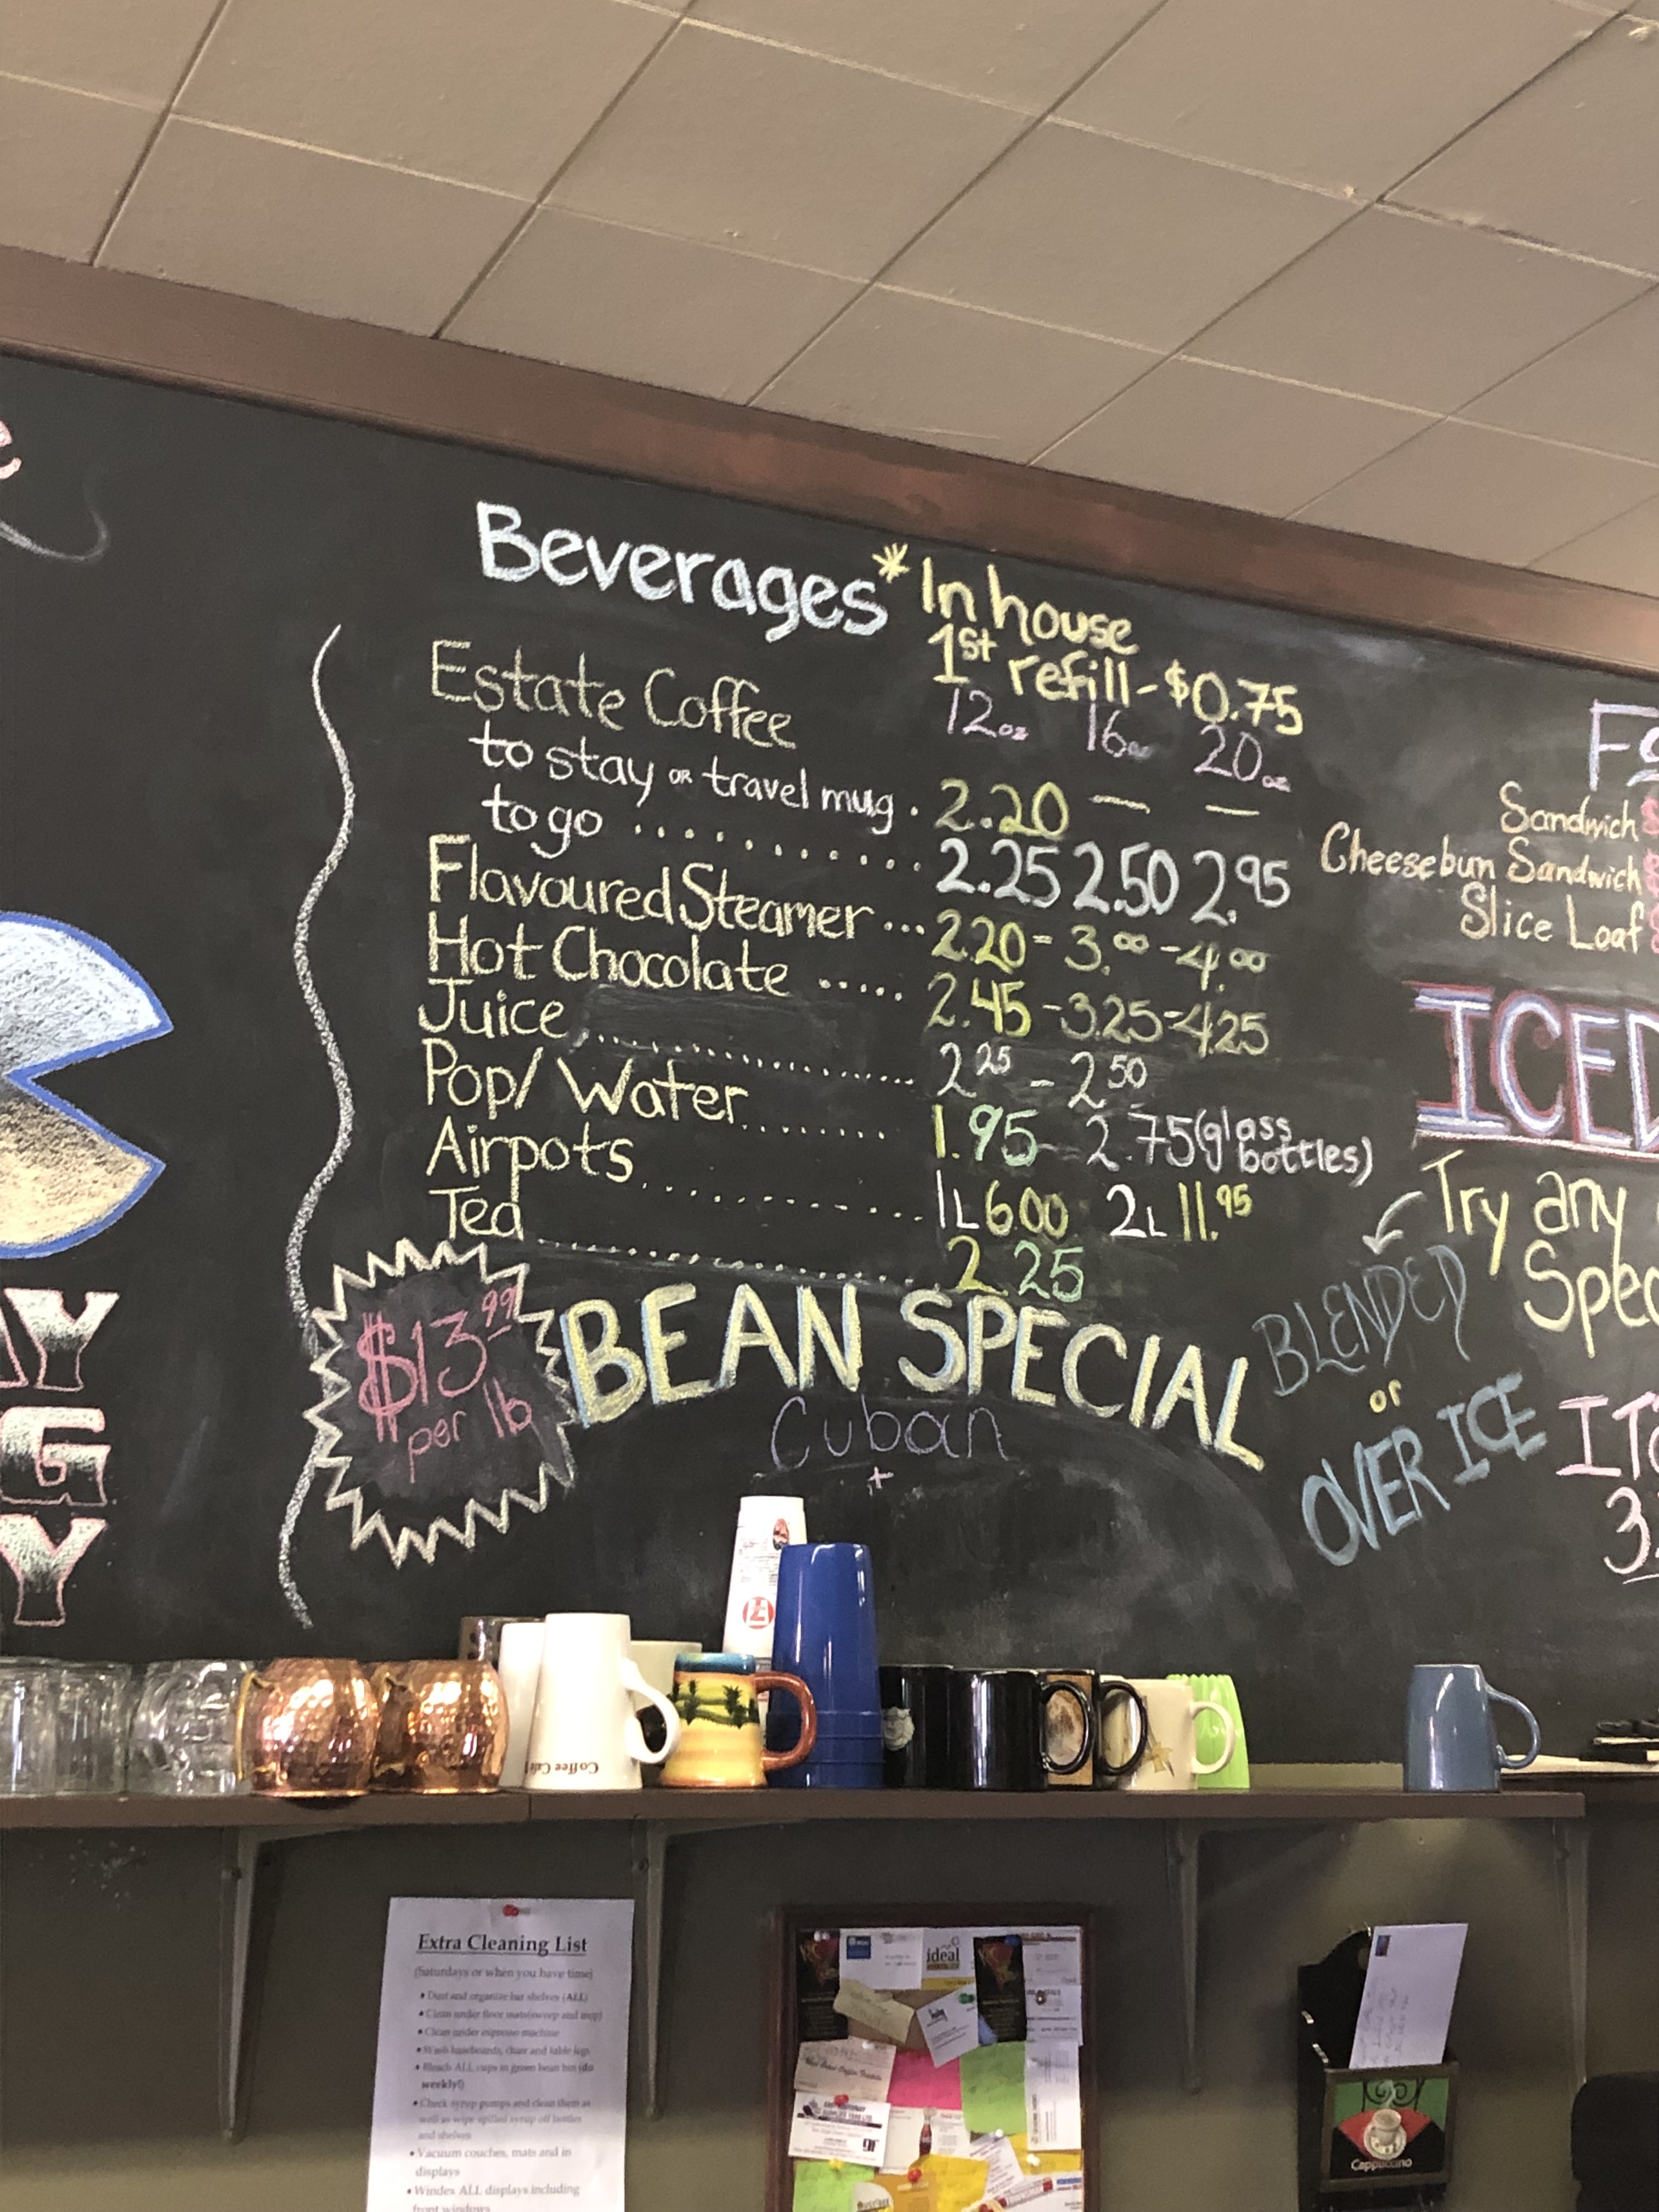 Beverages
*In house
1st refill-$0.75
Estate Coffee 12oz 16oz 20oz
to stay OR travel mug . 2.20 — —
to go ............ 2.25 2.50 2.95
Flavoured Steamer ... 2.20 - 3.00 - 4.00
Hot Chocolate ..... 2.45 - 3.25 - 4.25
Juice ................ 2 25 - 2 50
Pop/Water ........ 1.95 - 2.75 (glass bottles)
Airpots ............. 1L 6.00 2L 11.95
Tea ....................... 2.25
$13.99
per lb
BEAN SPECIAL
Cuban
+
Sandwich
Cheesebun Sandwich
Slice Loaf
ICED
Try any
BLENDED
or
OVER ICE
AY
G
Y
Coffee Café
Extra Cleaning List
(Saturdays or when you have time)
• Dust and organize bar shelves (ALL)
• Clean under floor mats(sweep and mop)
• Clean under espresso machine
• Wash baseboards, chair and table legs
• Bleach ALL cups in green bean bus (do
weekly!)
• Check syrup pumps and clean them as
well as wipe spilled syrup off bottles
and shelves
• Vacuum couches, mats and in
displays
• Windex ALL displays including
front windows
ideal
Cappuccino